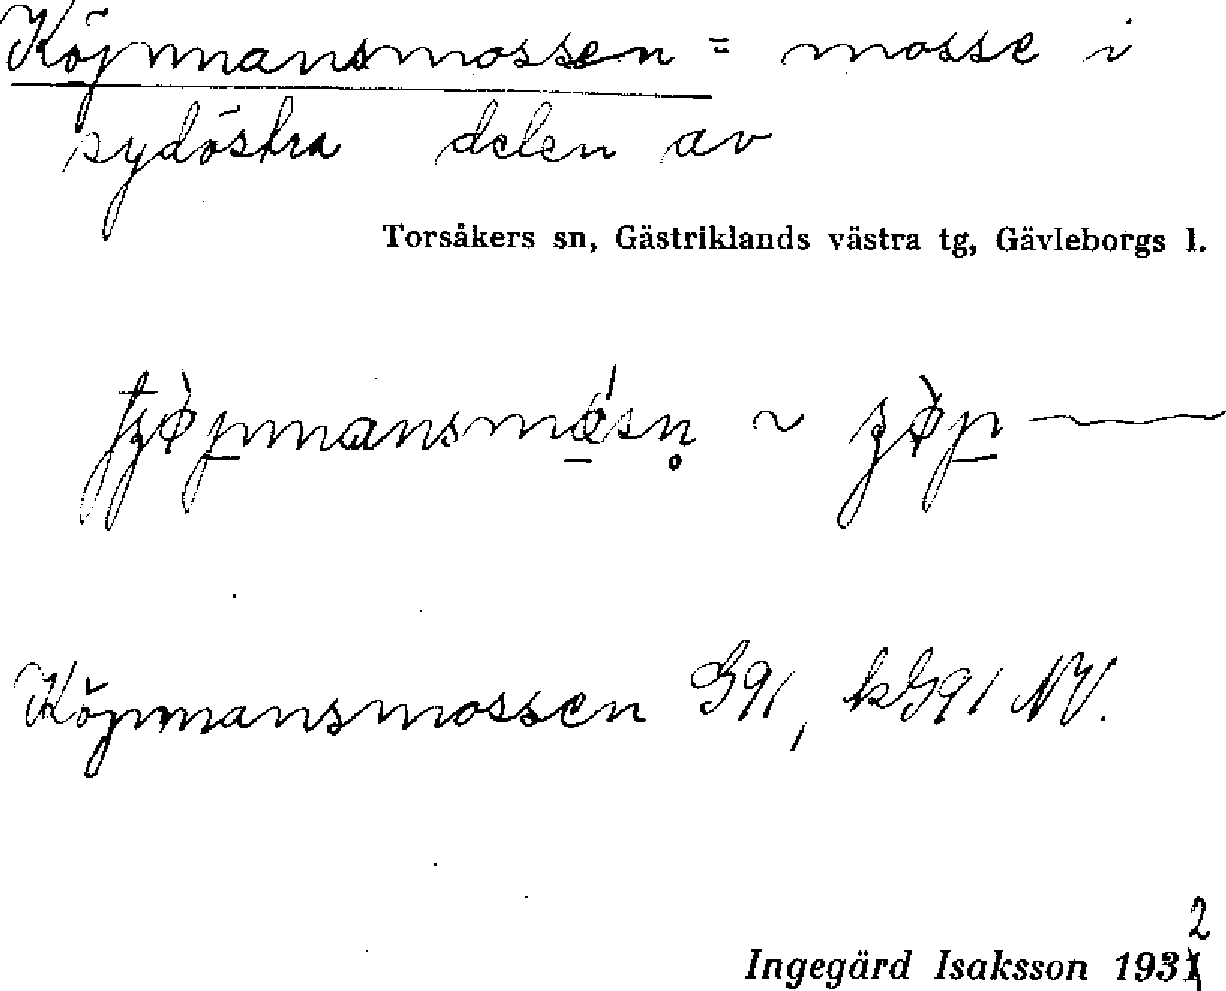 Köpmansmossen = mosse i
sydöstra delen av
Torsåkers sn, Gästriklands västra tg, Gävleborgs l.
Köpmansmossen G91, kG91 NV.
2
Ingegärd Isaksson 1931